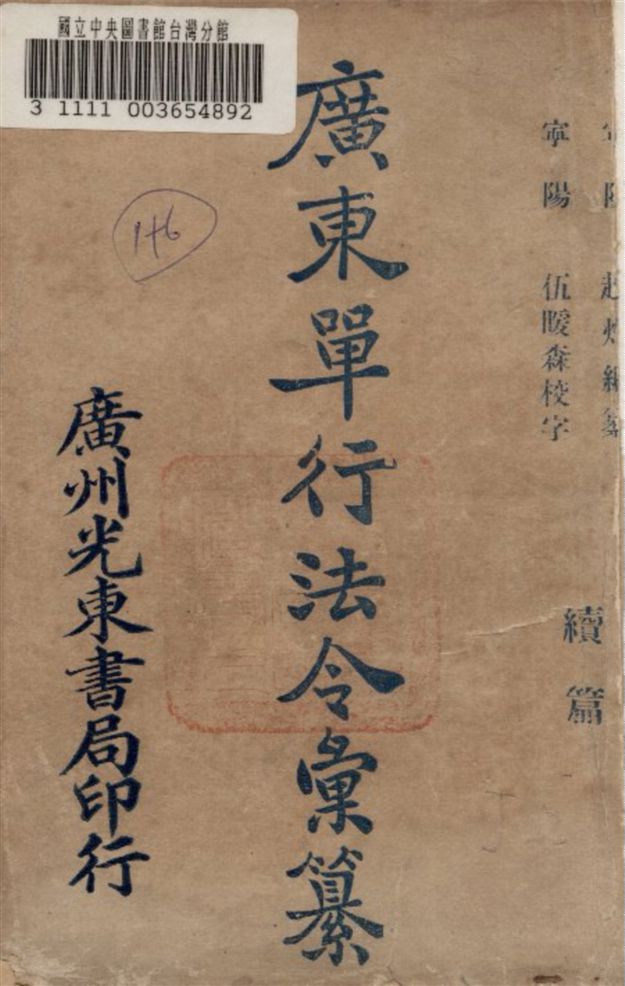 國立中央圖書館台灣分館
3 1111 003654892
146
寧陽 伍睃森校字
續篇
廣東單行法令彙纂
廣州光東書局印行